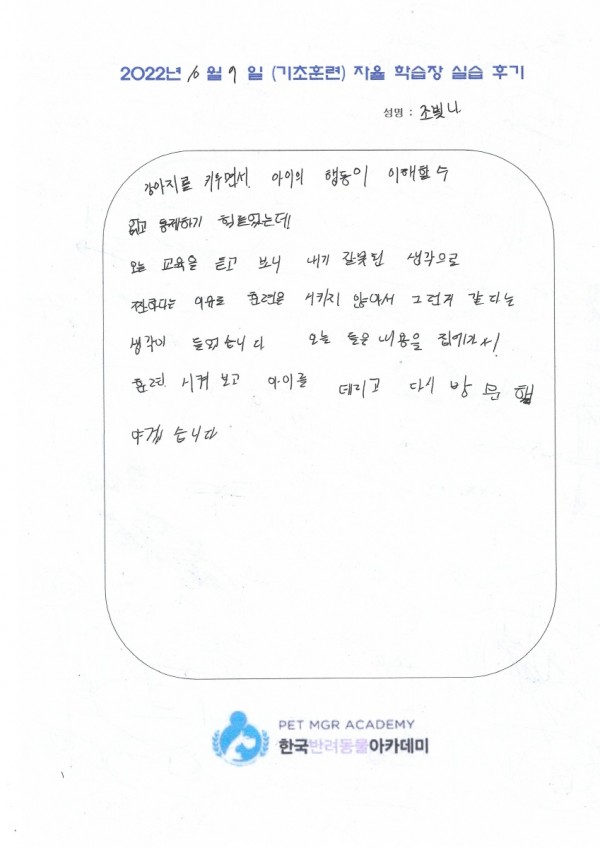 2022년 10월 9일 (기초훈련) 자율 학습장 실습 후기
성명 : 조빛나
강아지를 키우면서 아이의 행동이 이해할 수
없고 통제하기 힘들었는데
오늘 교육을 듣고 보니 내가 잘못된 생각으로
이유로 훈련을 시키지 않아서 그런거 같다는
생각이 들었습니다 오늘 들은 내용을 집에가서
훈련 시켜 보고 아이를 데리고 다시 방문해
야겠습니다
PET MGR ACADEMY
한국반려동물아카데미